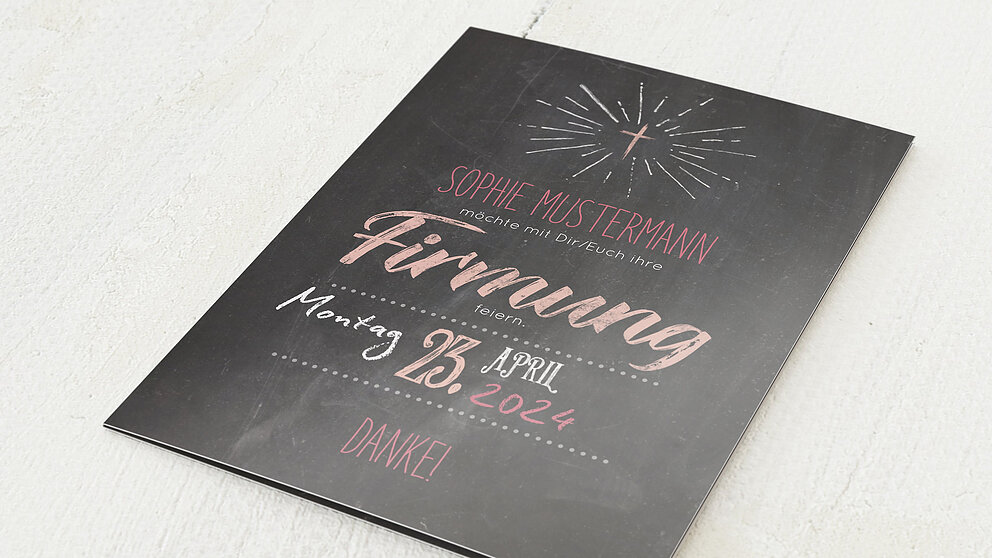 SOPHIE MUSTERMANN
möchte mit Dir/Euch ihre
Firmung
feiern.
Montag 23. APRIL
2024
DANKE!